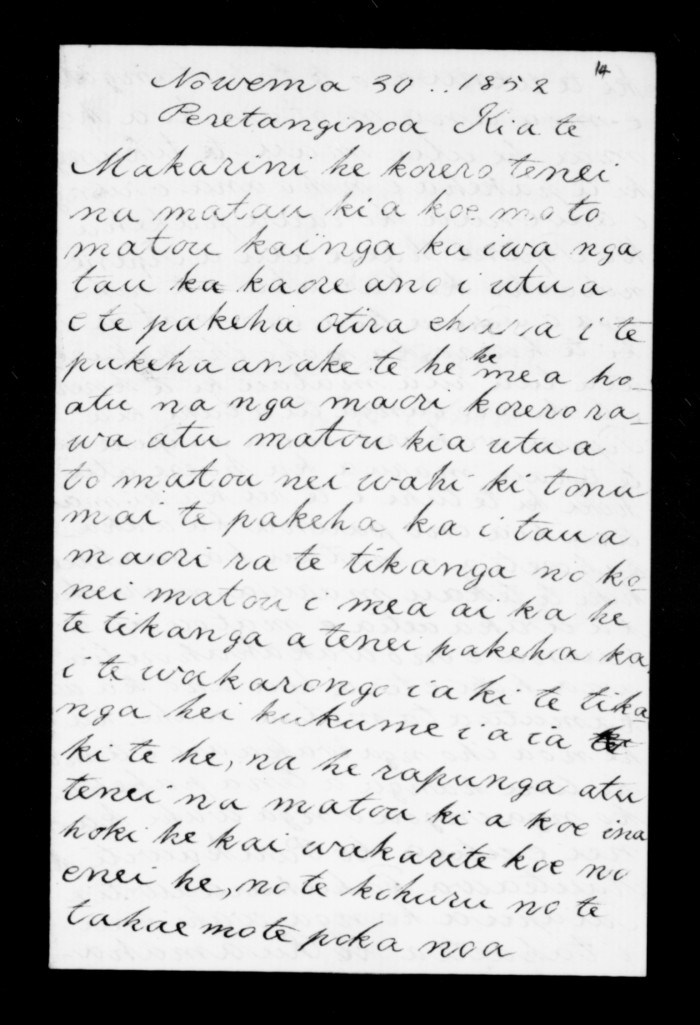 14
Nowema 30 .. 1852
Peretanginoa Kia te
Makarini he korero tenei
na matau ki a koe mo to
matou kainga ka iwa nga
tau ka kaore ano i utu a
e te pakeha otira ehara i te
pakeha anake te he he mea ho-
atu na nga maori korero ra-
wa atu matou kia utu a
to matou nei wahi ki tonu
mai te pakeha ka i taua
maori ra te tikanga no ko
nei matou i mea ai ka he
te tikanga a tenei pakeha ka
i te wakarongo ia ki te tika
nga hei kukume i a ia
ki te he, na he rapunga atu
tenei na matou ki a koe ina
hoki he kai wakarite koe no
enei he, no te kohuru no te
tahae mo te poka noa